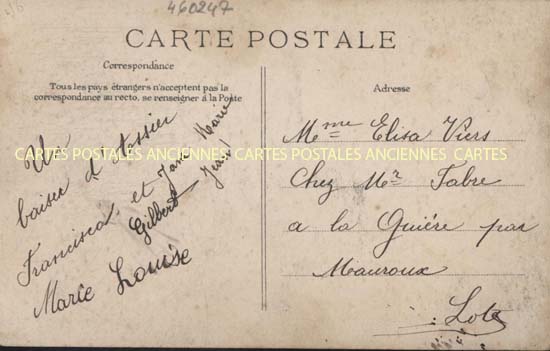 460247
CARTE POSTALE
Correspondance
Tous les pays étrangers n'acceptent pas la
correspondance au recto, se renseigner à la Poste
Un
baiser d'Assier
Francisca, et Jane Marie
Gilbert Jean
Marie Louise
Adresse
Mme Elisa Viers
Chez Mr Fabre
a la Guiére par
Mauroux
Lot
CARTES POSTALES ANCIENNES CARTES POSTALES ANCIENNES CARTES